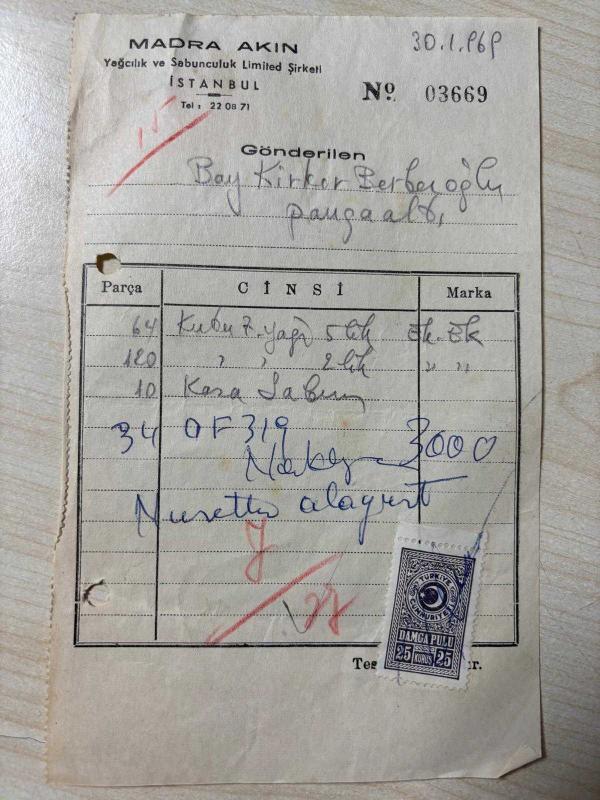 MADRA AKIN
30.1.969
Yağcılık ve Sabunculuk Limited Şirketi
İSTANBUL
Tel : 22 08 71
No. 03669
15
Gönderilen
Bay Kirkor Berberoğlu
pangaaltı
Parça CİNSİ Marka
64 Kutu Z. yağı 5 lik Ek. Ek
120 " " 2 lik " "
10 Kara Sabun
34 OF 319
3000
Nurettin
TÜRKİYE CUMHURİYETİ
DAMGA PULU
25 KURUŞ 25